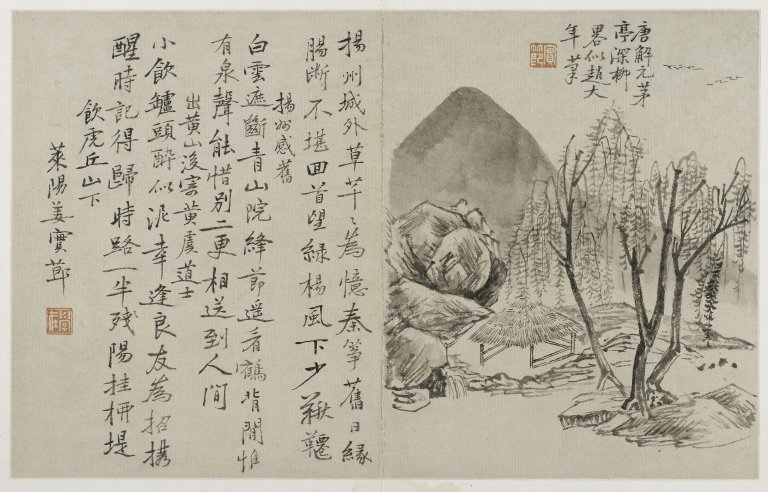 唐解元茅
亭深柳
畧似趙大
年筆
揚州城外草芊〻為憶秦箏舊日緣
腸斷不堪回首望綠楊風下少鞦韆
揚州感舊
白雲遮斷青山院絳節遥看鶴背閒惟
有泉聲能惜別二更相送到人間
出黄山後寄黄虞道士
小飲鑪頭醉似泥幸逢良友為招携
醒時記得歸時路一半残陽挂柳堤
飲虎丘山下
萊陽姜實節